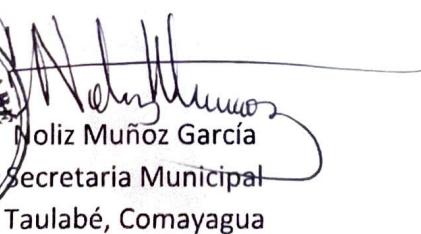 Noliz Muñoz
Noliz Muñoz García
Secretaria Municipal
Taulabé, Comayagua